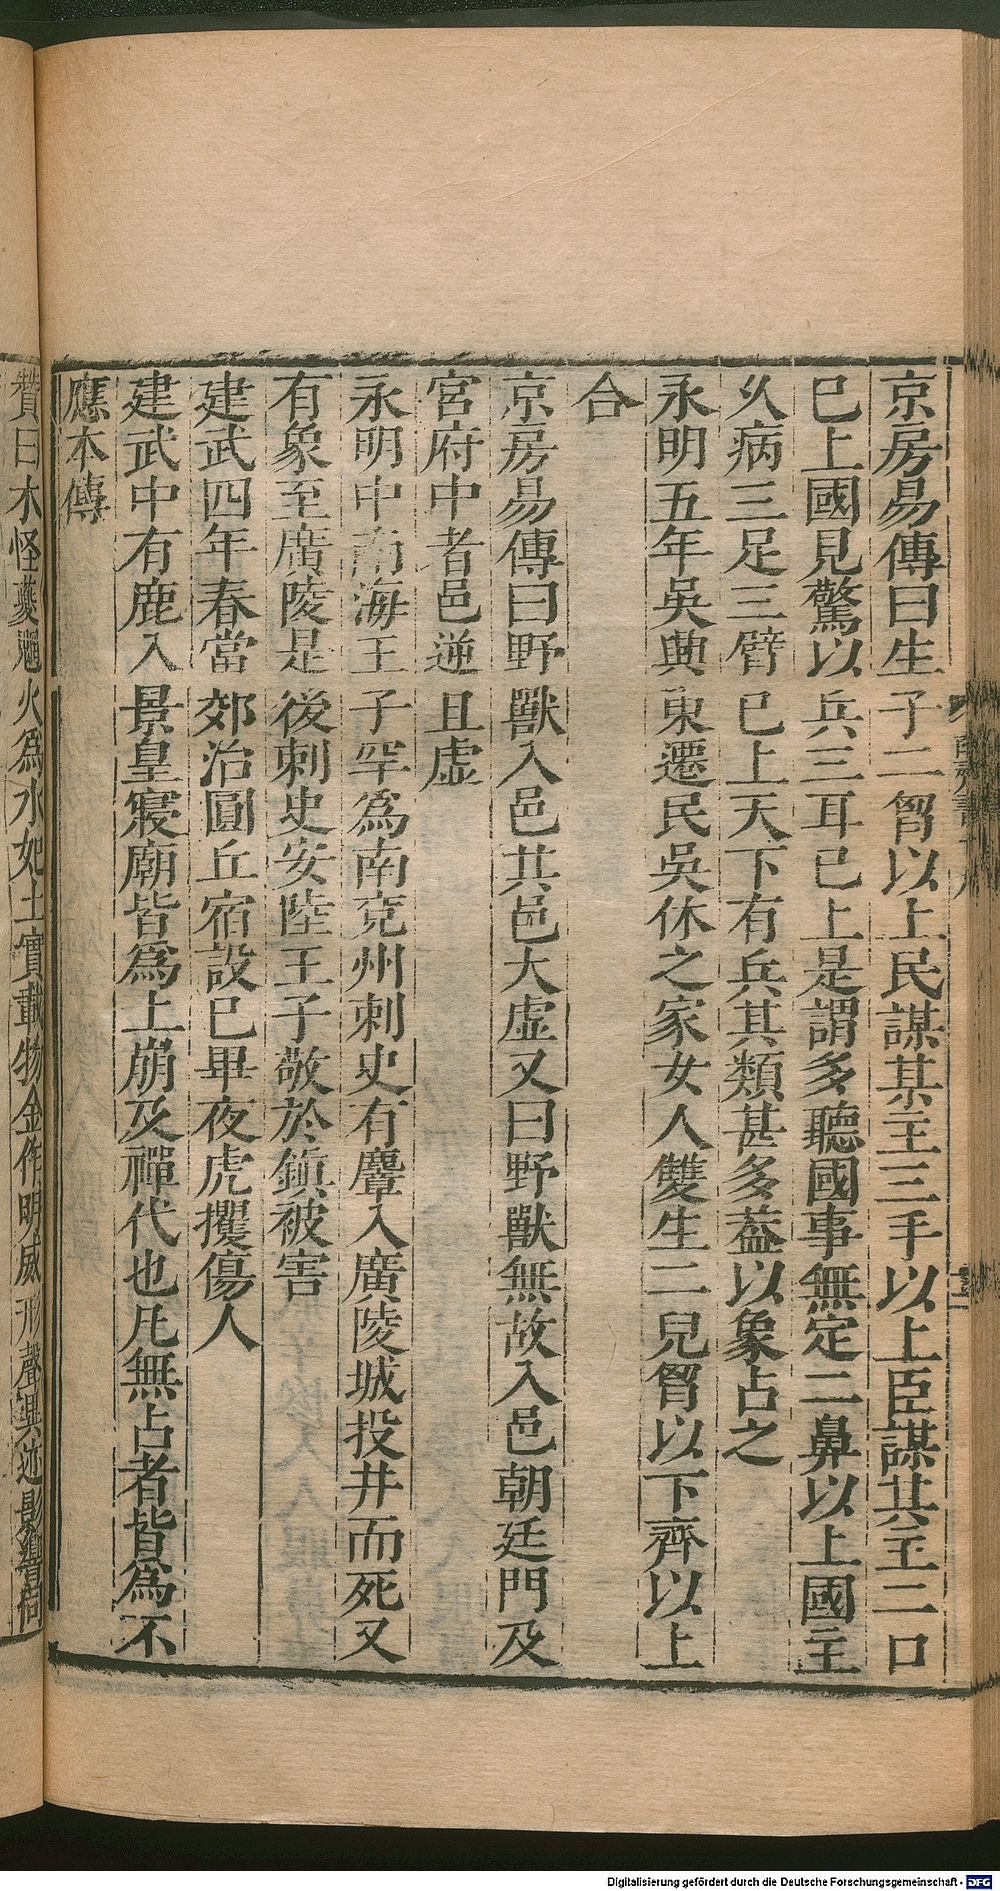 京房易傳曰生子二胷以上民謀其主三手以上臣謀其主二口
已上國見驚以兵三耳已上是謂多聽國事無定二鼻以上國主
乆病三足三臂已上天下有兵其類甚多蓋以象占之
永明五年吳興東遷民吳休之家女人雙生二兒胷以下齊以上
合
京房易傳曰野獸入邑其邑大虛又曰野獸無故入邑朝廷門及
宮府中者邑逆且虛
永明中南海王子罕爲南兗州刺史有麞入廣陵城投井而死又
有象至廣陵是後刺史安陸王子敬於鎮被害
建武四年春當郊治圓丘宿設已畢夜虎攫傷人
建武中有鹿入景皇寢廟皆爲上崩及禪代也凡無占者皆爲不
應本傳
贊曰木怪夔魍火爲水妃土實載物金作明威形聲異迹影響同
Digitalisierung gefördert durch die Deutsche Forschungsgemeinschaft - DFG